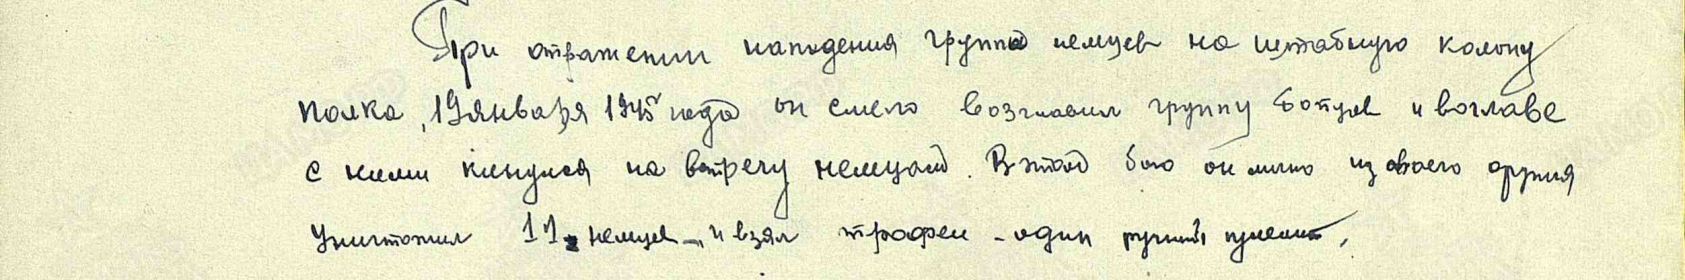 При отражении нападения группы немцев на штабную колону
полка, 19 января 1945 года он смело возглавил группу бойцов и воглаве
с ними кинулся на встречу немцам. В этом бою он лично из своего оружия
уничтожил 11 немцев и взял трофеи - один ручной пулемет,